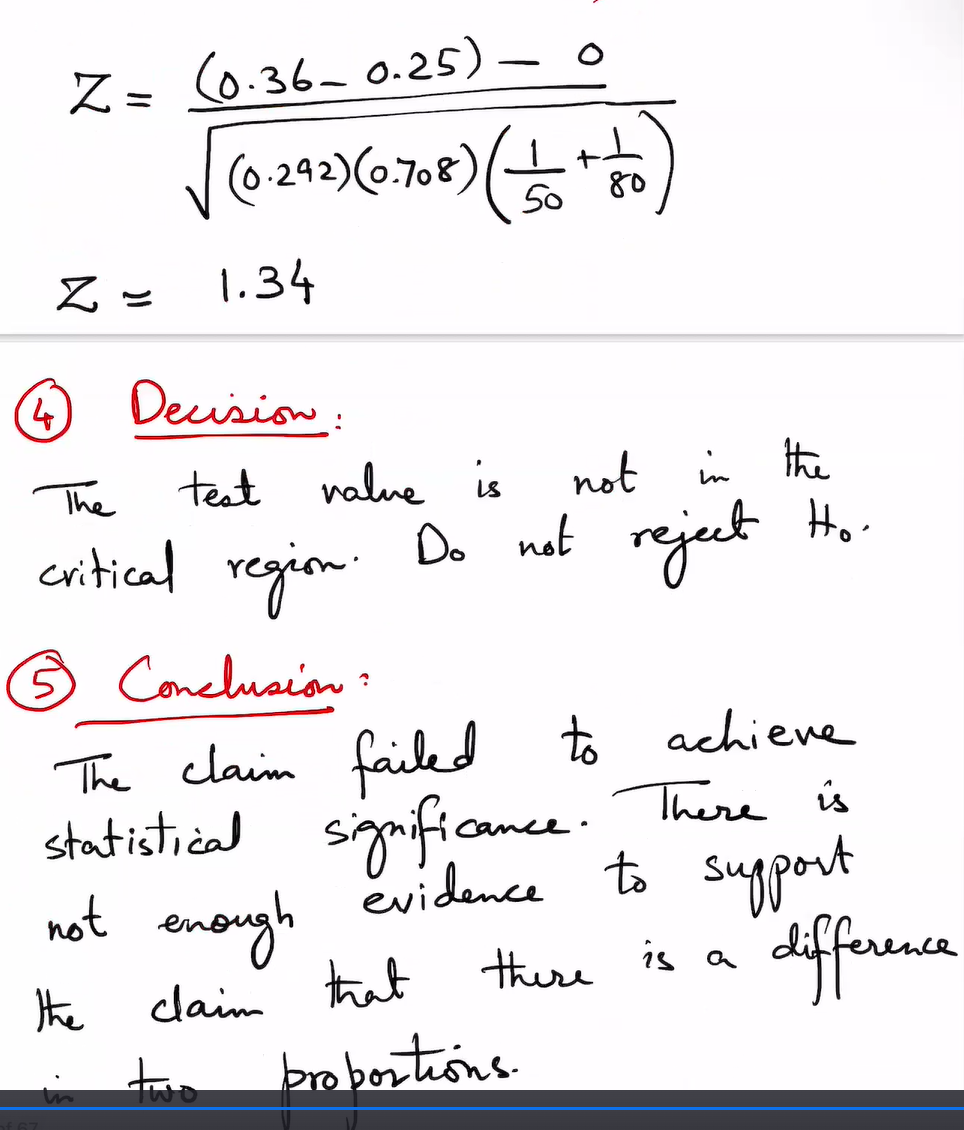 Z = (0.36 - 0.25) - 0 / √(0.292)(0.708)(1/50 + 1/80)
Z = 1.34
④ Decision:
The test value is not in the
critical region. Do not reject H₀.
⑤ Conclusion:
The claim failed to achieve
statistical significance. There is
not enough evidence to support
the claim that there is a difference
in two proportions.
of 67